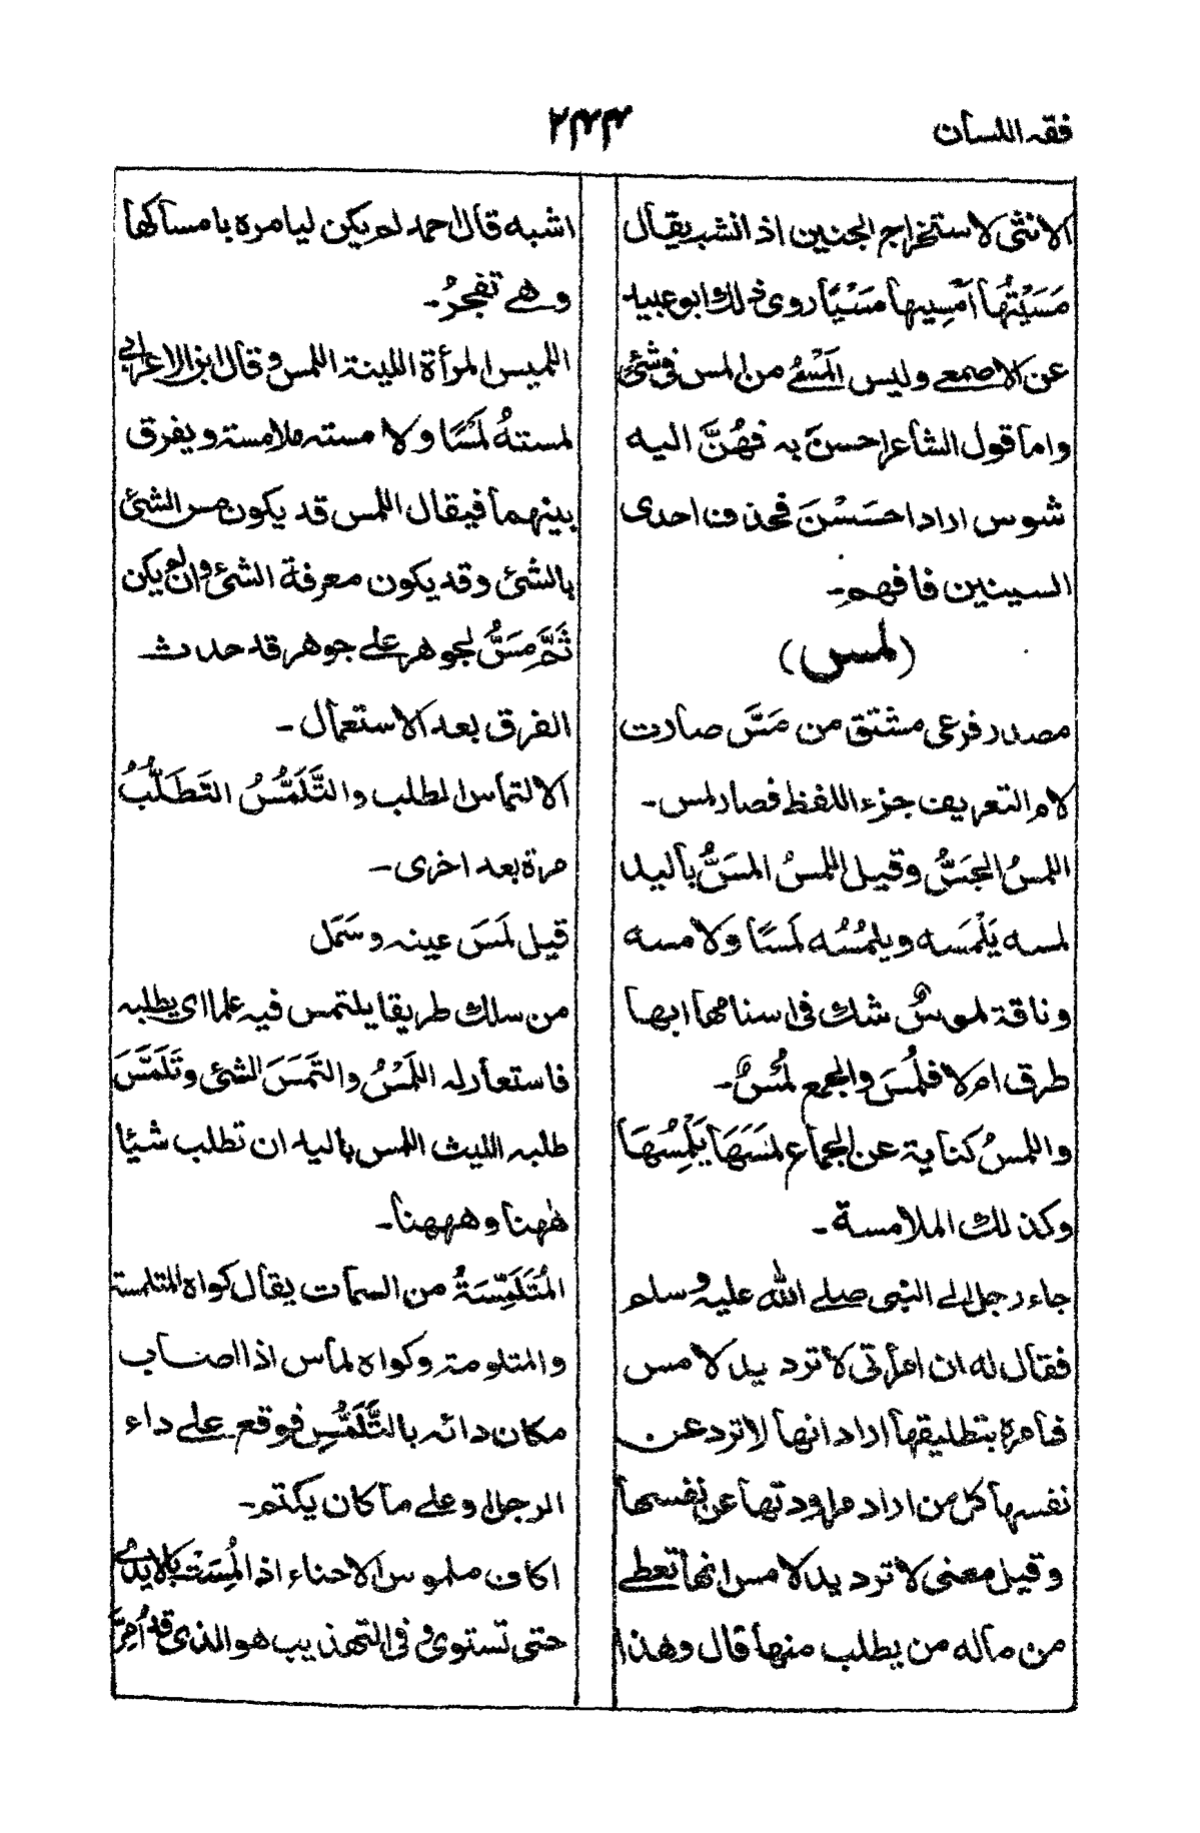 فقه اللسان
٢٤٤
الانثى لاستخراج الجنين اذ انشب يقال
مَسَيْتُهَا اَمْسِيها مَسْيًا روى ذلك ابو عبيد
عن الاصمعي وليس المَسْيُ من المس في شئ
واما قول الشاعر احسنَ به فهُنَّ اليه
شوس اراد احسَسْنَ فحذفنا احدى
السينين فافهم۔
(لمس)
مصدر فرعى مشتق من مَسَّ صارت
لام التعريف جزء اللفظ فصار لمس۔
اللمسُ الجَسُّ وقيل اللمسُ المسَّ باليد
لمسه يَلْمَسه ويلمُسُه لَمسًا ولامسه
وناقة لموسٌ شك فى اسنامها ابها
طرق ام لا فلُمسَ والجمع لُمْسٌ۔
واللمسُ كناية عن الجماع لمَسَهَا يَلْمِسُهَا
وكذلك الملامسة۔
جاء رجل الى النبى صلى الله عليه وسلم
فقال له ان امرأتى لا ترد يد لامس
فامره بتطليقها اراد انها لا ترد عن
نفسها كل من اراد مراودتها عن نفسها
وقيل معنى لا ترد يد لامس انها تعطى
من ماله من يطلب منها قال وهذا
اشبه قال احمد لم يكن ليامره بامساكها
وهى تفجرُ۔
اللميس المرأة اللينة اللمس وقال ابن الاعرابى
لمستهُ لَمْسًا ولامسته ملامسة ويفرق
بينهما فيقال اللمس قد يكون مس الشئ
بالشئ وقد يكون معرفة الشئ وان لم يكن
ثَمَّ مَسٌّ لجوهر على جوهر قد حدث
الفرق بعد الاستعمال۔
الالتماس المطلب والتَّلَمُّسُ التَطَلُّبُ
مرة بعد اخرى۔
قيل لَمَسَ عينه وسَمَل
من سلك طريقا يلتمس فيه علما اى يطلبه
فاستعار له اللَمْسُ والتَمَسَ الشئ وتَلَمَّسَ
طلبه الليث اللمس باليد ان تطلب شيًا
ههنا وههنا۔
المُتَلَمِّسَةُ من السمات يقال كواه المتلمسة
والمتلومة وكواه لماس اذا اصاب
مكان دائه بالتَّلَمُّسِ فوقع على داء
الرجل او على ما كان يكتم۔
اكاف ملموس الاحناء اذا لُمِسَتْ بالايدى
حتى تستوى وفى التهذيب هو الذى قد اُمِرَّ